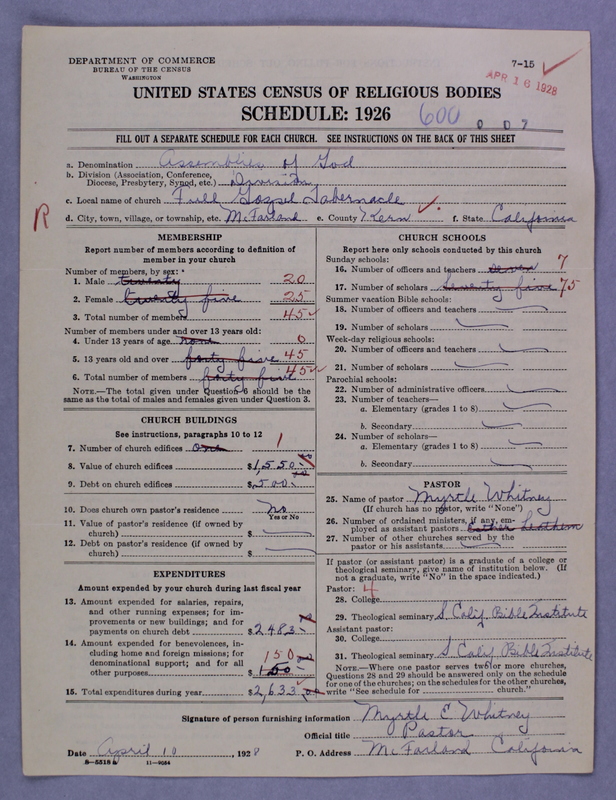 DEPARTMENT OF COMMERCE
BUREAU OF THE CENSUS
WASHINGTON
7-15
APR 16 1928
UNITED STATES CENSUS OF RELIGIOUS BODIES
SCHEDULE: 1926
600 007
FILL OUT A SEPARATE SCHEDULE FOR EACH CHURCH. SEE INSTRUCTIONS ON THE BACK OF THIS SHEET
a. Denomination Assemblies of God
b. Division (Association, Conference, Diocese, Presbytery, Synod, etc.) Division
c. Local name of church Full Gospel Tabernacle
R
d. City, town, village, or township, etc. McFarland e. County Kern f. State California
MEMBERSHIP
Report number of members according to definition of
member in your church
Number of members, by sex:
1. Male twenty 20
2. Female twenty five 25
3. Total number of members 45
Number of members under and over 13 years old:
4. Under 13 years of age none 0
5. 13 years old and over forty five 45
6. Total number of members forty five 45
NOTE.—The total given under Question 6 should be the
same as the total of males and females given under Question 3.
CHURCH BUILDINGS
See instructions, paragraphs 10 to 12
7. Number of church edifices one 1
8. Value of church edifices $1,550.00
9. Debt on church edifices $500.00
10. Does church own pastor's residence? No
Yes or No
11. Value of pastor's residence (if owned by
church) $
12. Debt on pastor's residence (if owned by
church) $
EXPENDITURES
Amount expended by your church during last fiscal year
13. Amount expended for salaries, repairs,
and other running expenses; for im-
provements or new buildings; and for
payments on church debt $2483.00
14. Amount expended for benevolences, in-
cluding home and foreign missions; for
denominational support; and for all
other purposes $150 150
15. Total expenditures during year $2,633.00
CHURCH SCHOOLS
Report here only schools conducted by this church
Sunday schools:
16. Number of officers and teachers seven 7
17. Number of scholars seventy five 75
Summer vacation Bible schools:
18. Number of officers and teachers
19. Number of scholars
Week-day religious schools:
20. Number of officers and teachers
21. Number of scholars
Parochial schools:
22. Number of administrative officers
23. Number of teachers—
a. Elementary (grades 1 to 8)
b. Secondary
24. Number of scholars—
a. Elementary (grades 1 to 8)
b. Secondary
PASTOR
25. Name of pastor Myrtle Whitney
(If church has no pastor, write "None")
26. Number of ordained ministers, if any, em-
ployed as assistant pastors
27. Number of other churches served by the
pastor or his assistants
If pastor (or assistant pastor) is a graduate of a college or
theological seminary, give name of institution below. (If
not a graduate, write "No" in the space indicated.)
Pastor: 4
28. College
29. Theological seminary S. Calif. Bible Institute
Assistant pastor:
30. College
31. Theological seminary S. Calif. Bible Institute
NOTE.—Where one pastor serves two or more churches,
Questions 28 and 29 should be answered only on the schedule
for one of the churches; on the schedules for the other churches,
write "See schedule for church."
Signature of person furnishing information Myrtle E Whitney
Official title Pastor
Date April 10, 1928 P. O. Address McFarland California
8-5518 a 11-9054